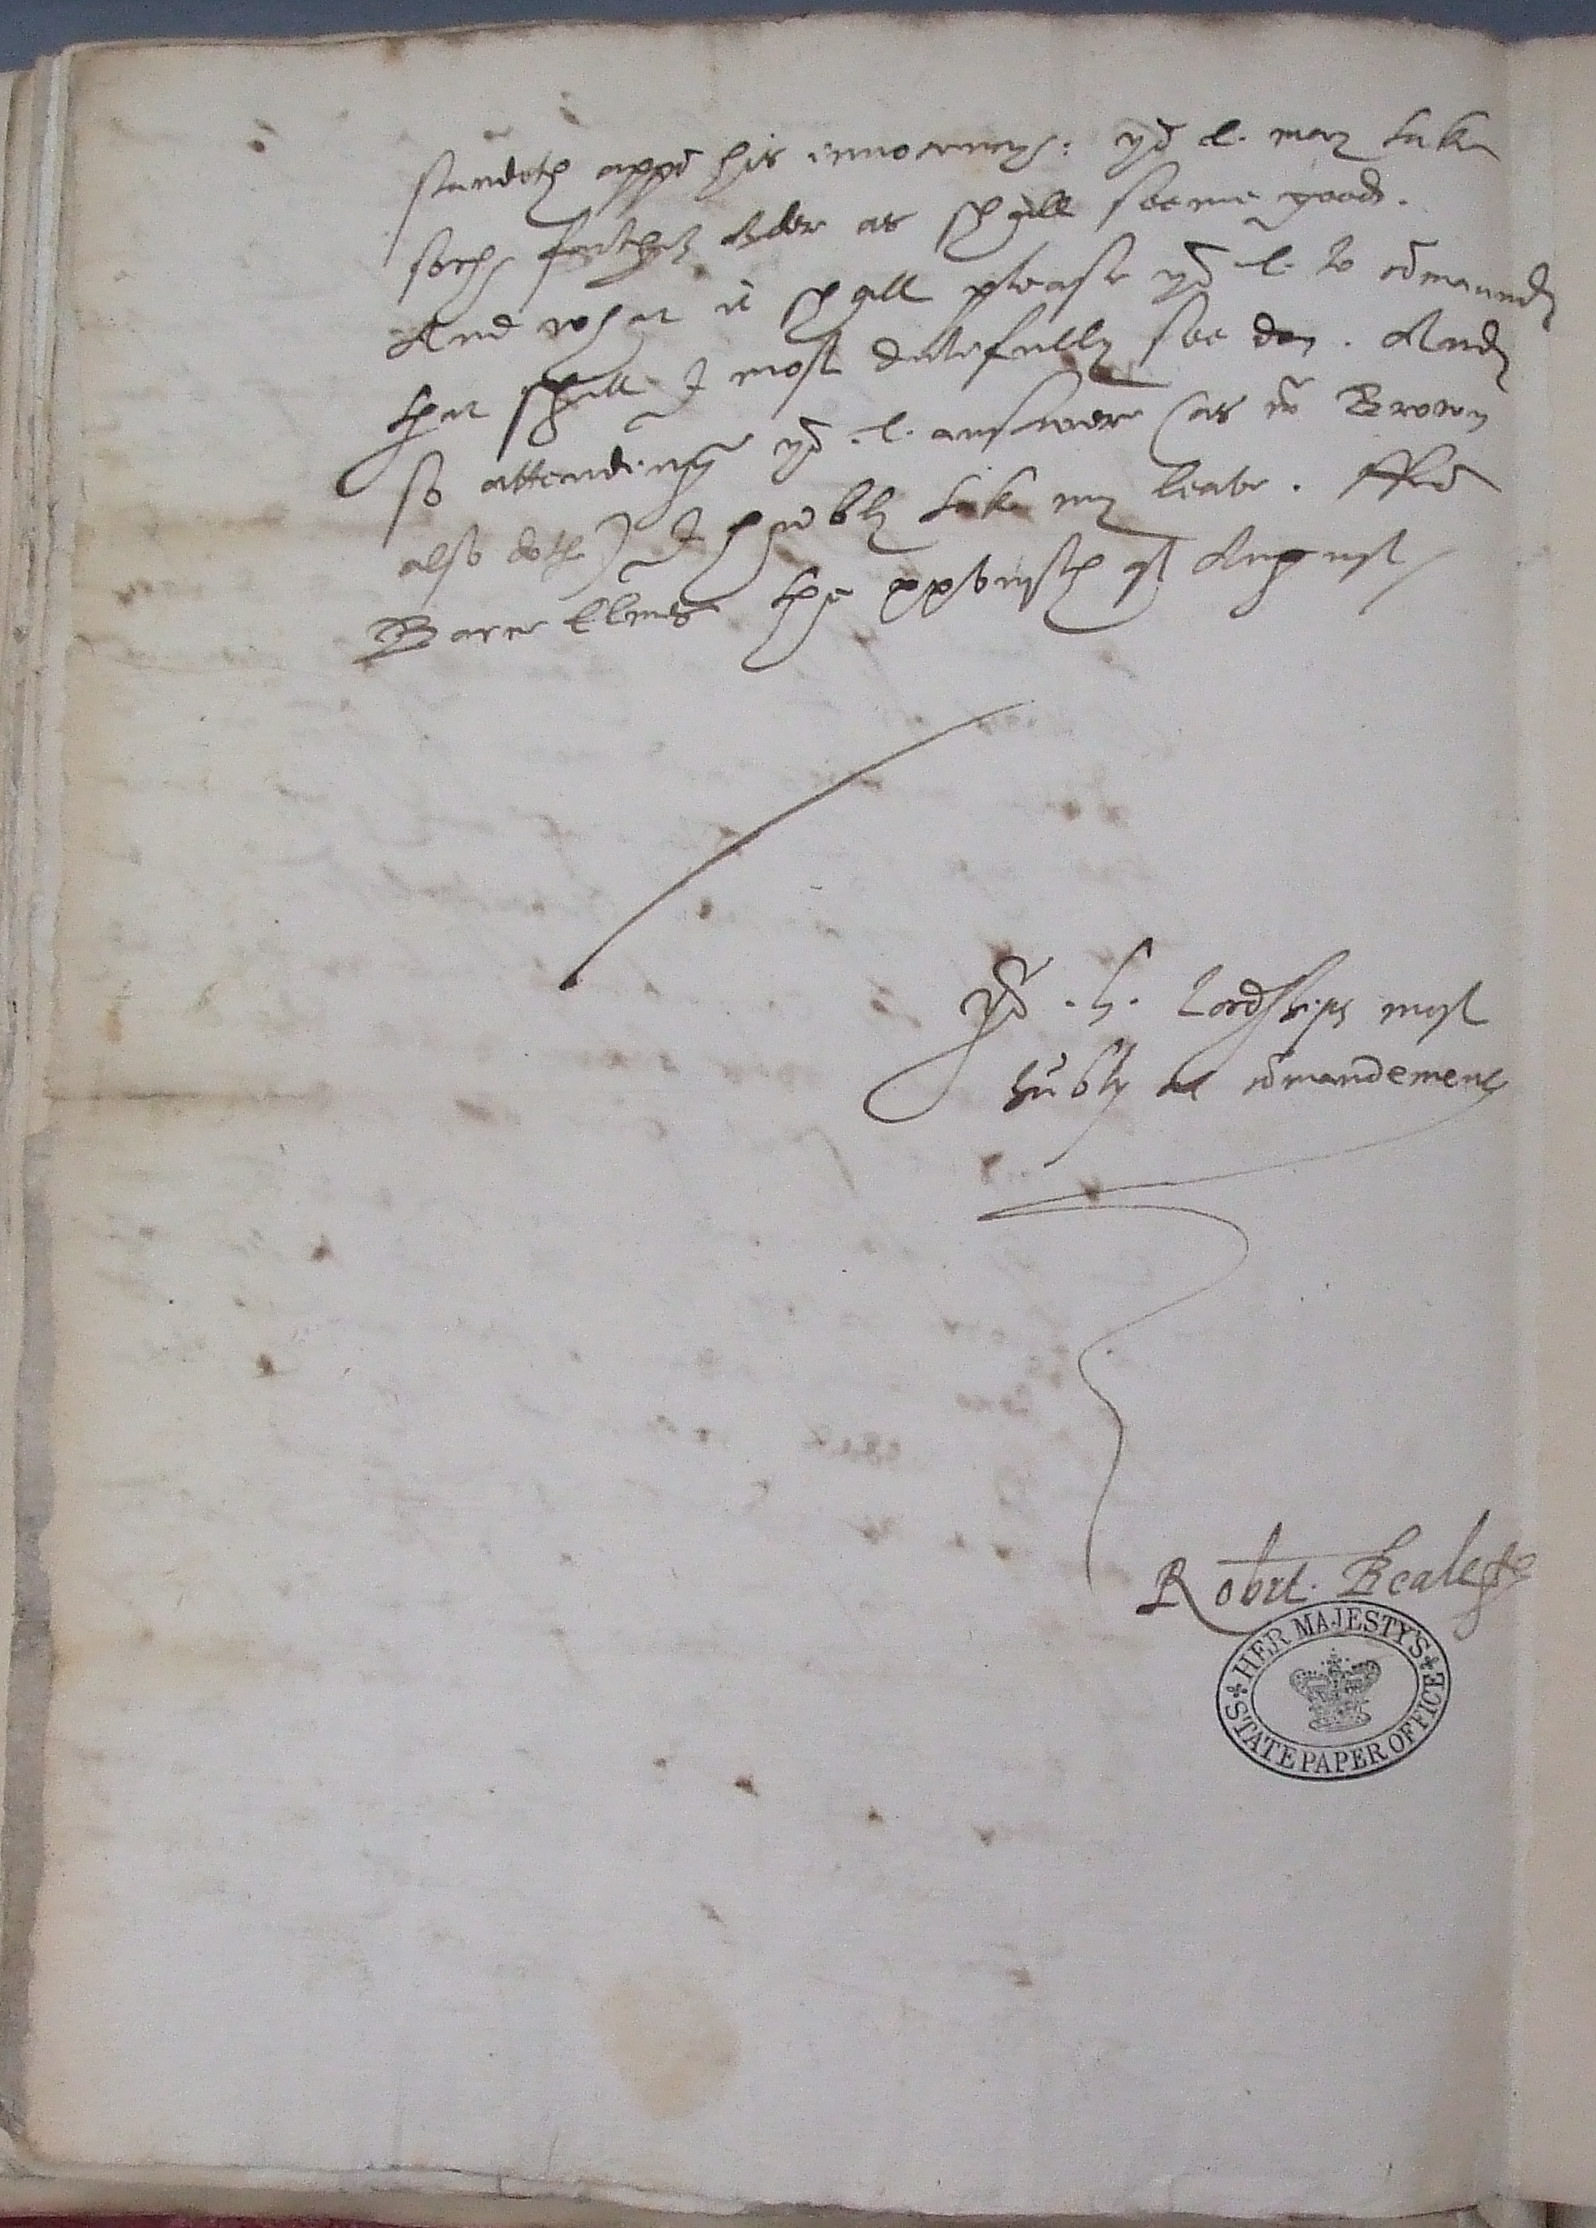 standeth uppō his innocency: yoᵘʳ l. may take
such further order as shall seeme good.
And what it shall please yoʳ l. to cōmaund
that shall I most dutifully see don. And
so attending yoʳ l. answere (as mʳ Brown
also doth) I hūbly take my leave. ffrō
Barn Elmes the xxviijth of August
Yoʳ .h. Lordships most
hūbly at cōmandement
Robrt. Beale
HER MAJESTY'S
STATE PAPER OFFICE